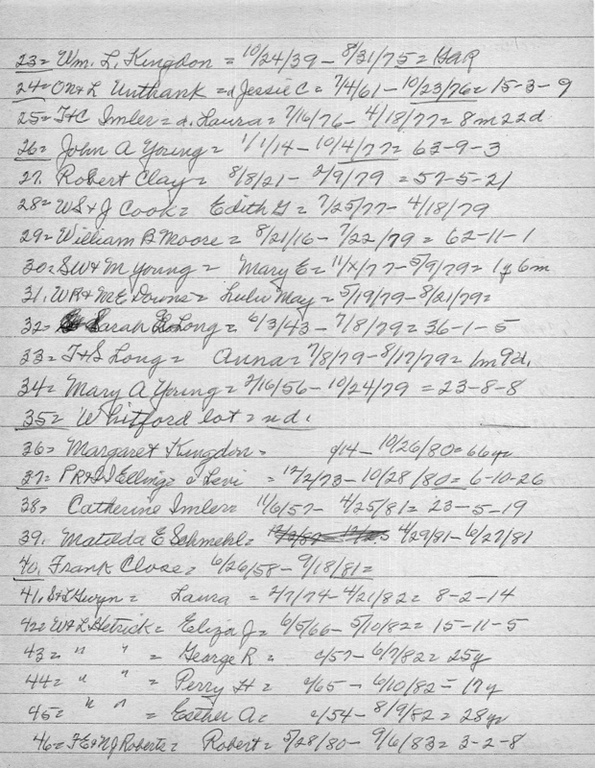 23= Wm. L. Kingdon = 10/24/39 - 8/31/75 = GAR
24= O.N.& L Unthank = d Jessie C = 7/4/61 - 10/23/76 = 15-3-9
25= T&C Imler = d. Laura = 7/16/76 - 4/18/77 = 8m 22d
26= John A Young = 1/1/14 - 10/4/77 = 63-9-3
27. Robert Clay = 8/8/21 - 2/9/79 = 57-5-21
28= WS & J Cook = Edith G = 7/25/77 - 4/18/79
29= William B Moore = 8/21/16 - 7/22/79 = 62-11-1
30= SW & M Young = Mary E = 11/x/77 - 5/9/79 = 1y 6m
31. WR & ME Downs = Lulu May = 5/19/79 - 8/21/79 =
32= Sarah E Long = 6/3/43 - 7/8/79 = 36-1-5
33= T&S Long = Anna = 7/8/79 - 8/17/79 = 1m 9d.
34= Mary A Young = 2/16/56 - 10/24/79 = 23-8-8
35= Whitford lot = n d.
36= Margaret Kingdon = c/14 - 10/26/80 = 66 yr
37= PR & Elling = Levi = 12/2/73 - 10/28/80 = 6-10-26
38= Catherine Imler = 11/6/57 - 4/25/81 = 23-5-19
39. Matilda E Schmehl = 4/29/81 - 6/27/81
40. Frank Close = 6/26/58 - 9/18/81 =
41. S&L Gwyn = Laura = 2/7/74 - 4/21/82 = 8-2-14
42= W & L Hetrick = Eliza J = 6/5/66 - 5/10/82 = 15-11-5
43= " " = George R = c/57 - 6/7/82 = 25y
44= " " = Perry H = c/65 - 6/10/82 = 17y
45= " " = Esther A = c/54 - 8/9/82 = 28 yr
46= TE & NJ Roberts = Robert = 5/28/80 - 9/6/83 = 3-2-8